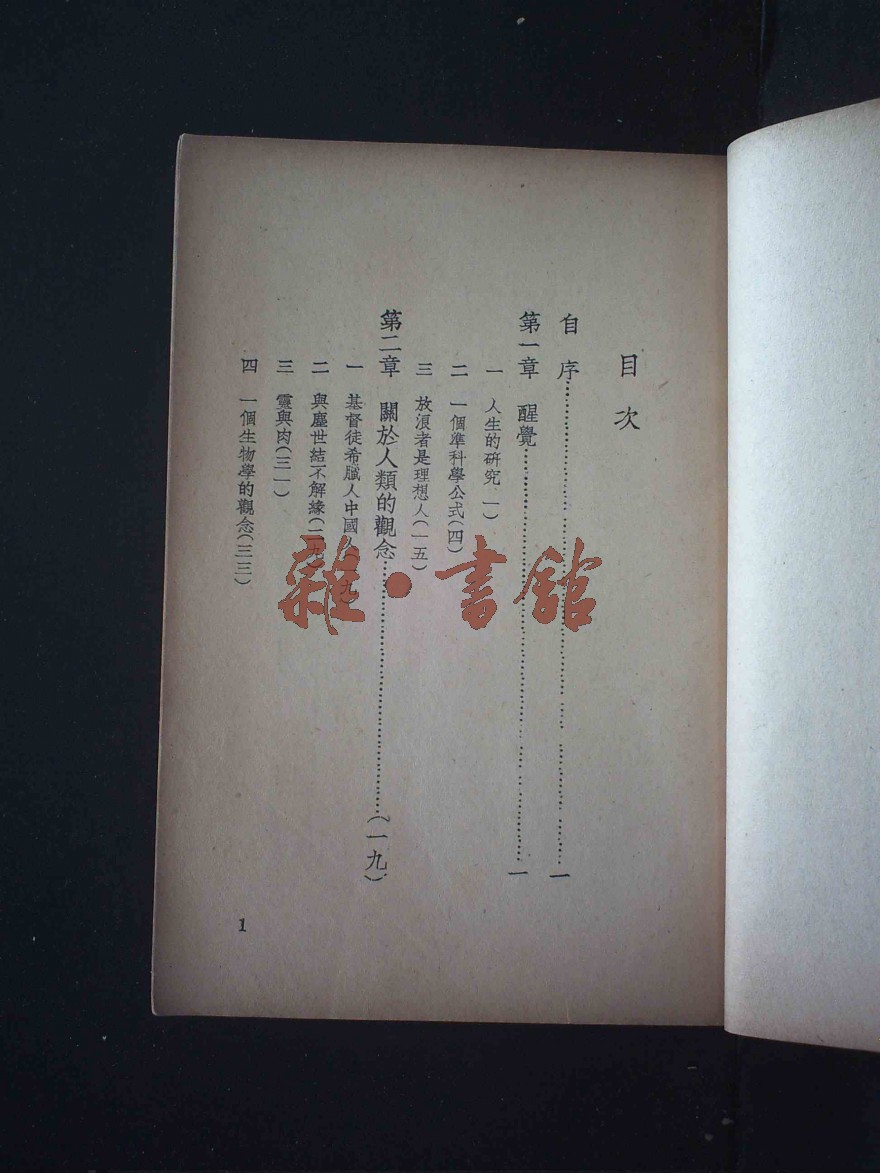 目次
自序……………………一
第一章 醒覺……………………一
一 人生的研究 一)
二 一個準科學公式(四)
三 放浪者是理想人(一五)
第二章 關於人類的觀念……………………(一九)
一 基督徒希臘人中國人 九)
二 與塵世結不解緣(二九)
三 靈與肉(三一)
四 一個生物學的觀念(三三)
1
雜·書館